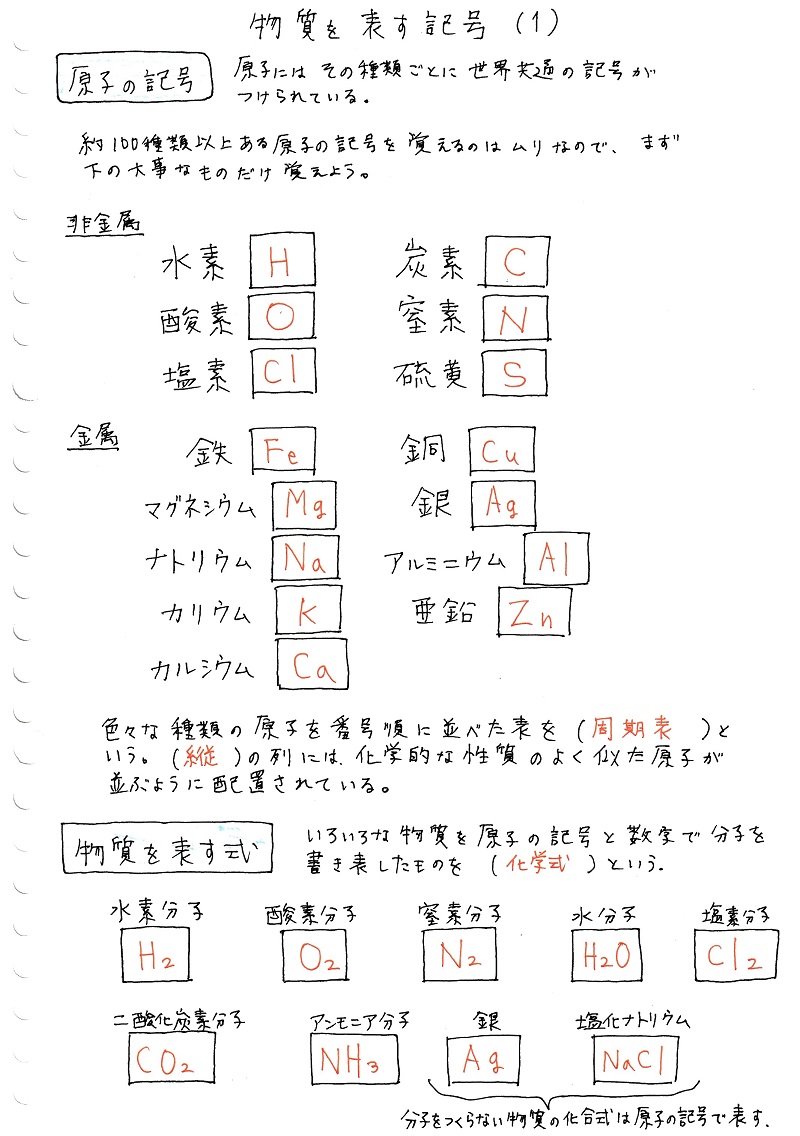 物質を表す記号 (1)
原子の記号
原子には その種類ごとに 世界共通の記号が
つけられている。
約100種類以上ある原子の記号を 覚えるのは ムリなので、 まず
下の大事なものだけ 覚えよう。
非金属
水素 H 炭素 C
酸素 O 窒素 N
塩素 Cl 硫黄 S
金属
鉄 Fe 銅 Cu
マグネシウム Mg 銀 Ag
ナトリウム Na アルミニウム Al
カリウム K 亜鉛 Zn
カルシウム Ca
色々な種類の原子を番号順に並べた表を (周期表)と
いう。(縦)の列には、化学的な性質のよく似た原子が
並ぶように配置されている。
物質を表す式
いろいろな物質を原子の記号と数字で分子を
書き表したものを (化学式)という.
水素分子 酸素分子 窒素分子 水分子 塩素分子
H2 O2 N2 H2O Cl2
二酸化炭素分子 アンモニア分子 銀 塩化ナトリウム
CO2 NH3 Ag NaCl
分子をつくらない物質の化合式は原子の記号で表す.